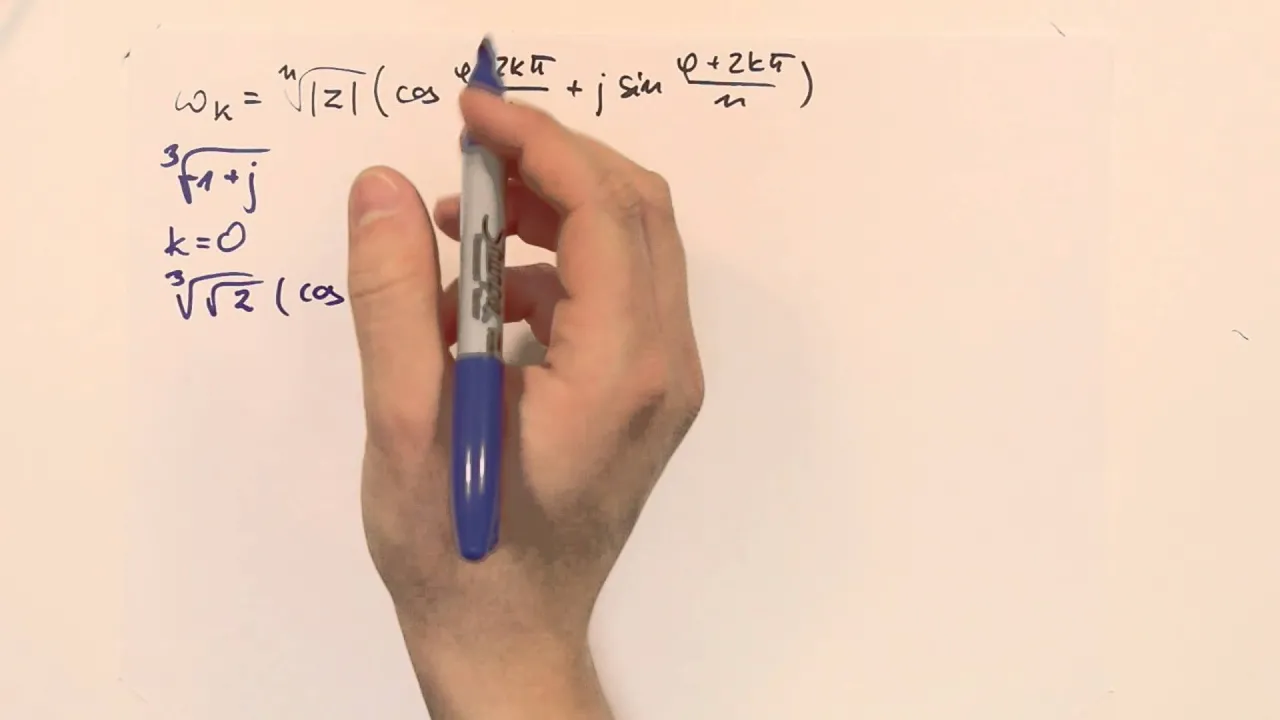 ω_k = ⁿ√|z| (cos φ 2kπ + j sin (φ + 2kπ)/n )
³√-1 + j
k = 0
³√√2 (cos